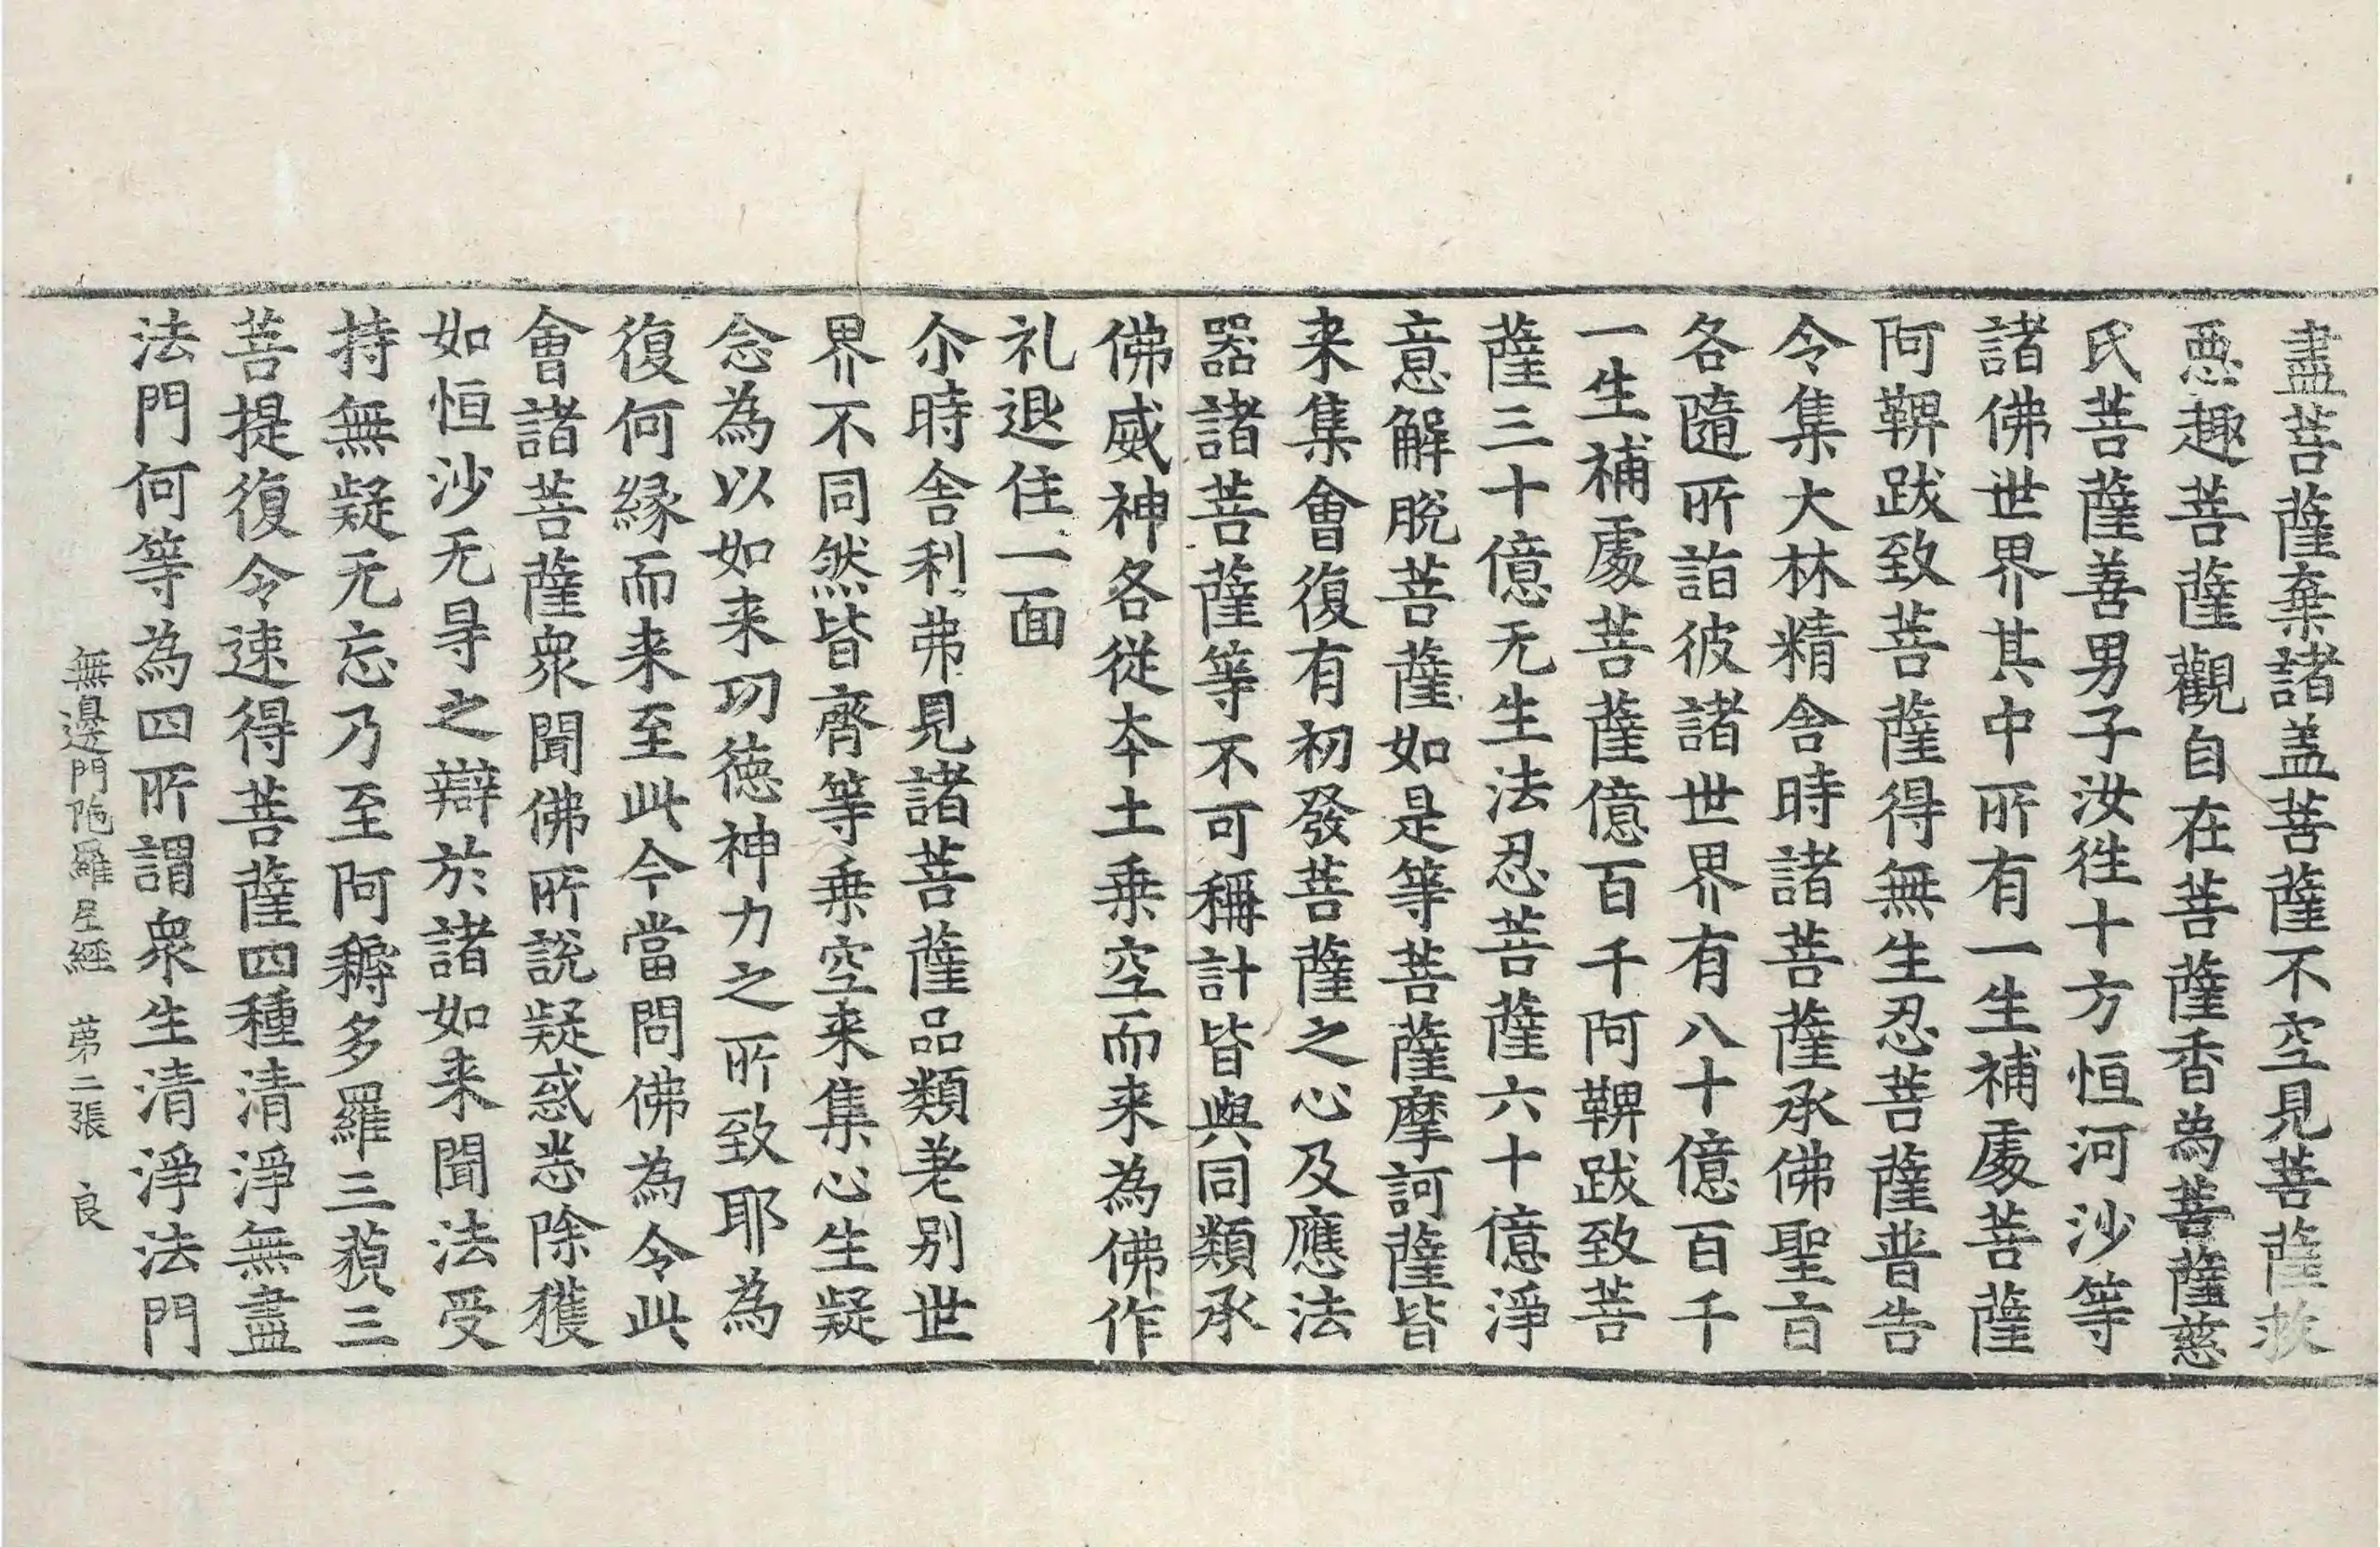 盡菩薩棄諸盖菩薩不空見菩薩救
惡趣菩薩觀自在菩薩香為菩薩慈
氏菩薩善男子汝往十方恒河沙等
諸佛世界其中所有一生補處菩薩
阿鞞跋致菩薩得無生忍菩薩普告
令集大林精舍時諸菩薩承佛聖旨
各隨所詣彼諸世界有八十億百千
一生補處菩薩億百千阿鞞跋致菩
薩三十億无生法忍菩薩六十億淨
意解脫菩薩如是等菩薩摩訶薩皆
来集會復有初發菩薩之心及應法
器諸菩薩等不可稱計皆與同類承
佛威神各從夲土乗空而来為佛作
礼退住一面
尒時舍利弗見諸菩薩品類差別世
界不同然皆齊等乗空来集心生疑
念為以如来功德神力之所致耶為
復何緣而来至此今當問佛為令此
會諸菩薩衆聞佛所說疑惑悉除獲
如恒沙无㝵之辯於諸如来聞法受
持無疑无忘乃至阿耨多羅三藐三
菩提復令速得菩薩四種清淨無盡
法門何等為四所謂衆生清淨法門
無邊門陁羅尼經 第二張 良